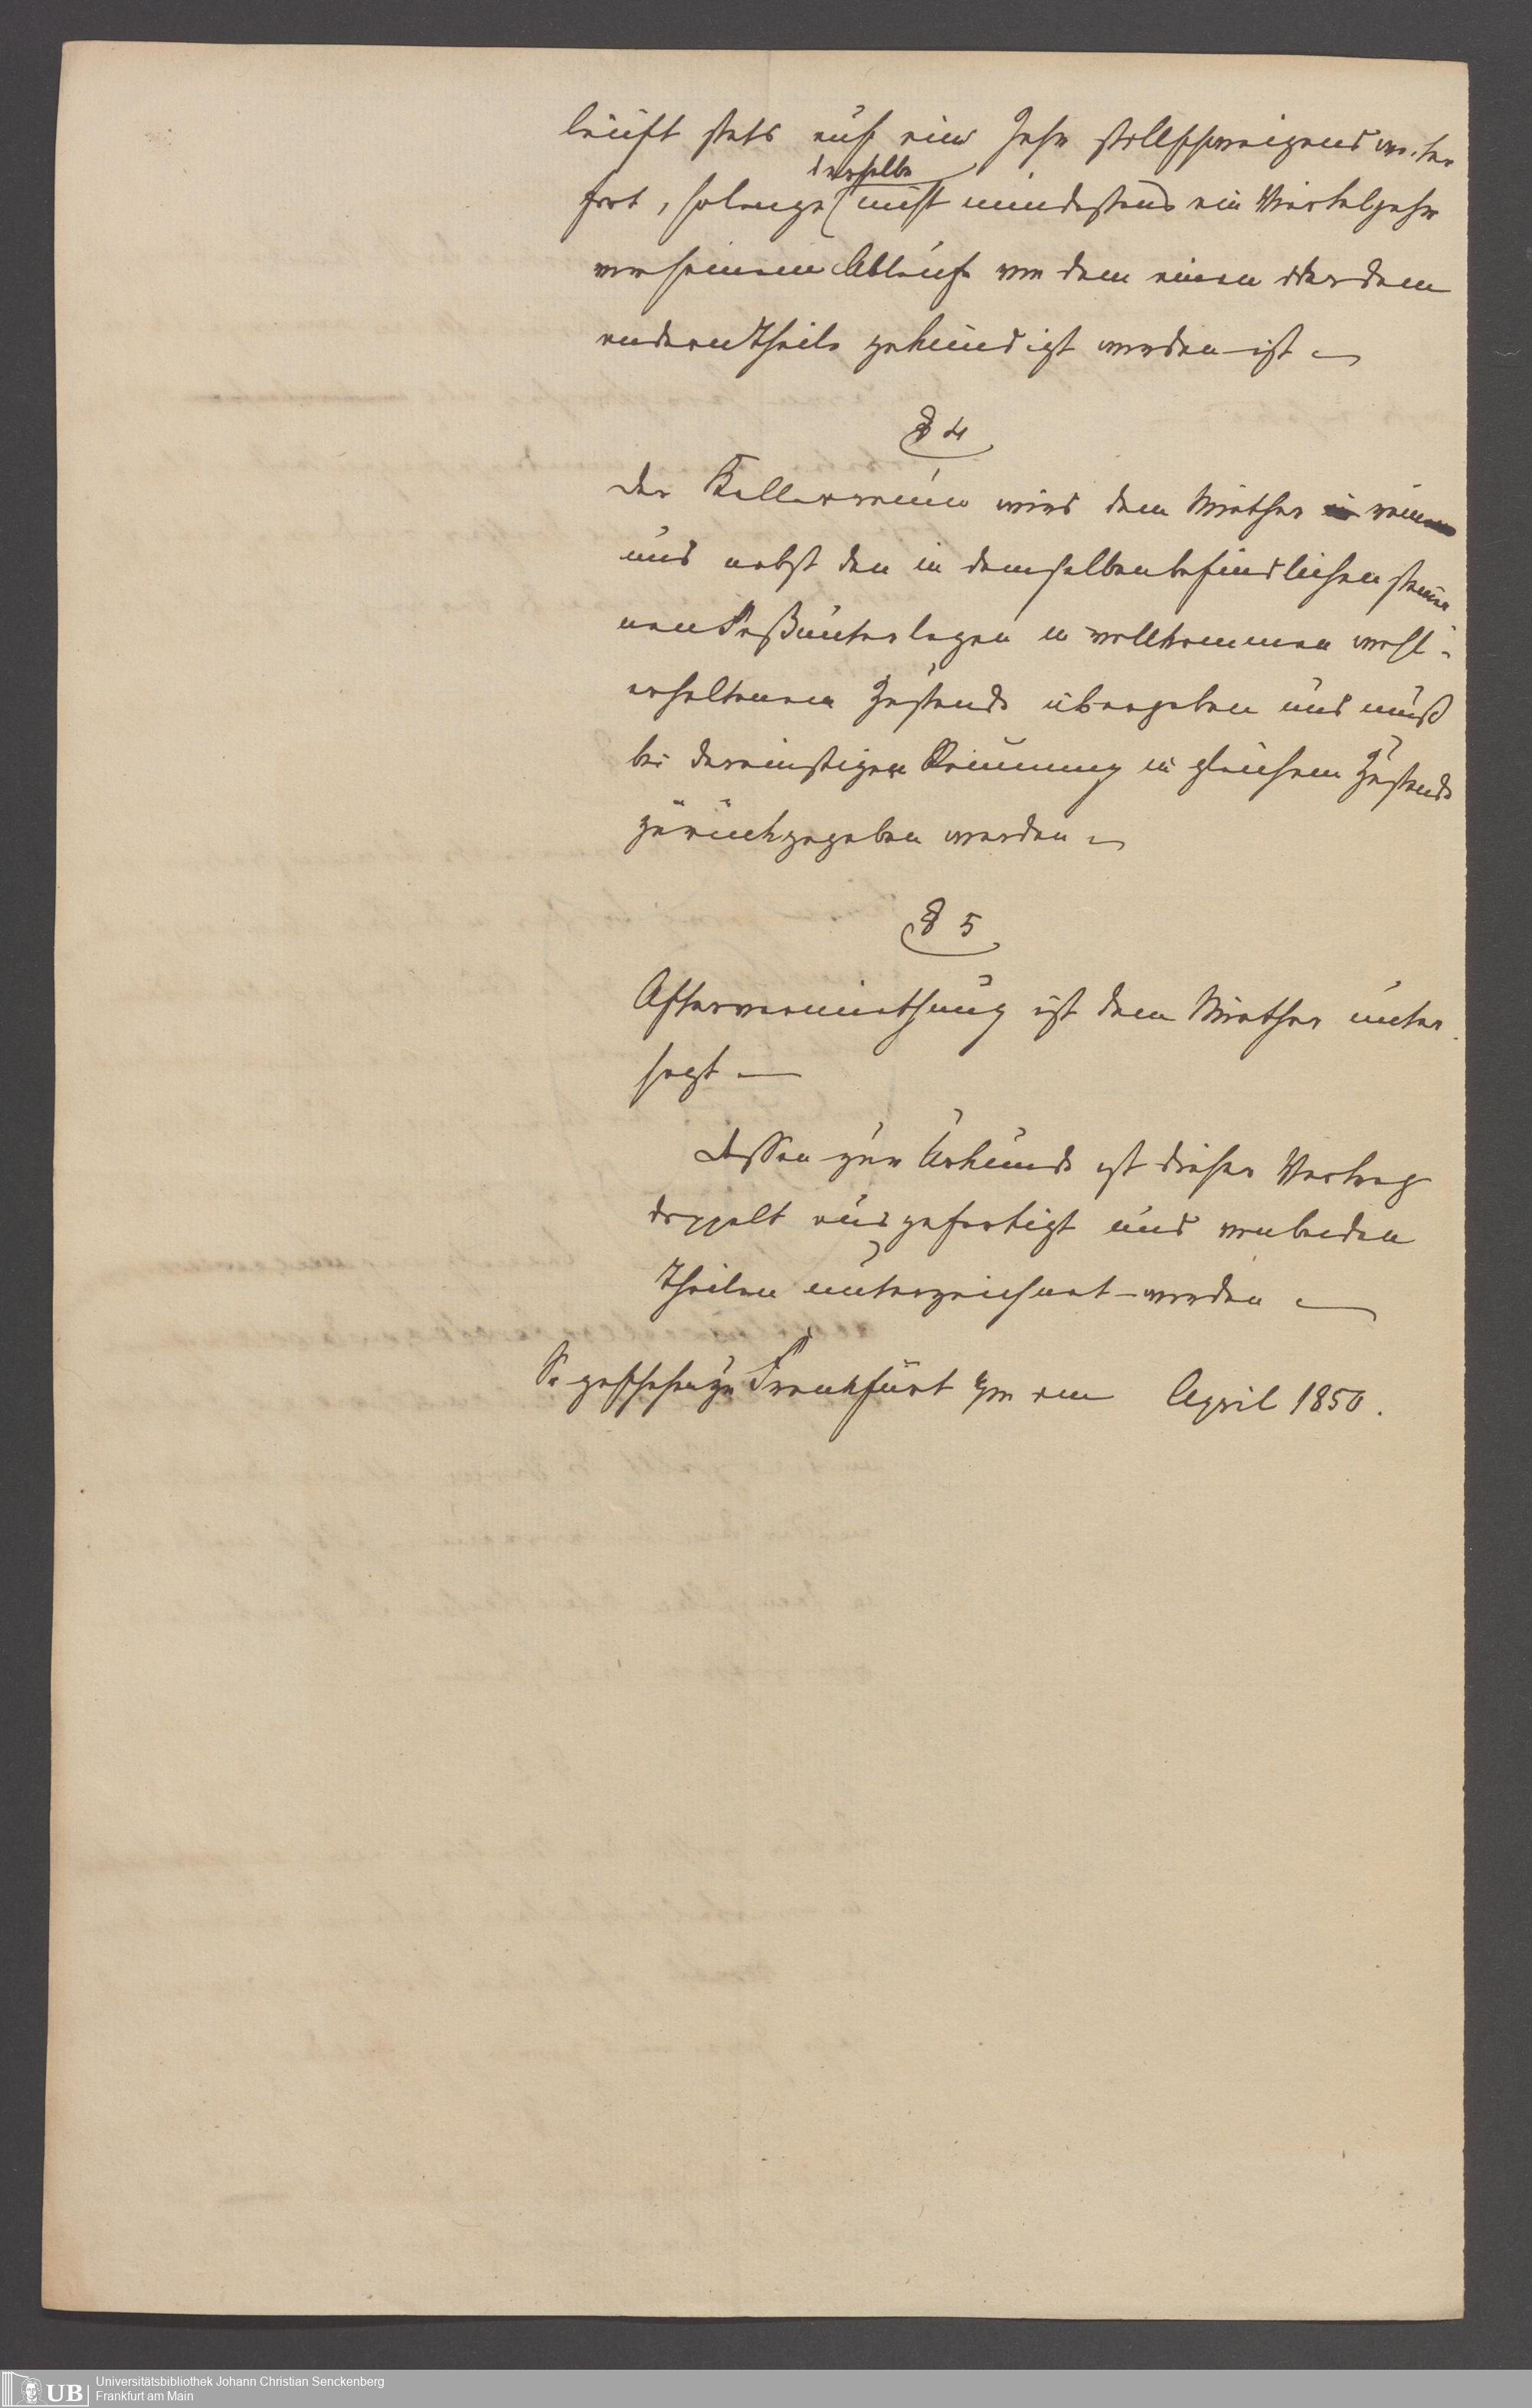 läuft stets auf ein Jahr stillschweigend weiter
derselbe
fort, solange nicht mindestens ein Vierteljahr
vor seinem Ablauf von dem einen oder dem
anderen Theile gekündigt worden ist
§ 4
Der Kellerraum wird dem Miether
und nebst den in demselben befindlichen steiner
nen Faßunterlagen in vollkommen wohl-
erhaltenem Zustande übergeben und muß
bei dereinstiger Räumung in gleichem Zustande
zurückgegeben werden
§ 5
Aftervermiethung ist dem Miether unter-
sagt
Dessen zur Urkunde ist dieser Vertrag
doppelt ausgefertigt und von beiden
Theilen unterzeichnet worden
So geschehen zu Frankfurt a/m den April 1850.
UB
Universitätsbibliothek Johann Christian Senckenberg
Frankfurt am Main